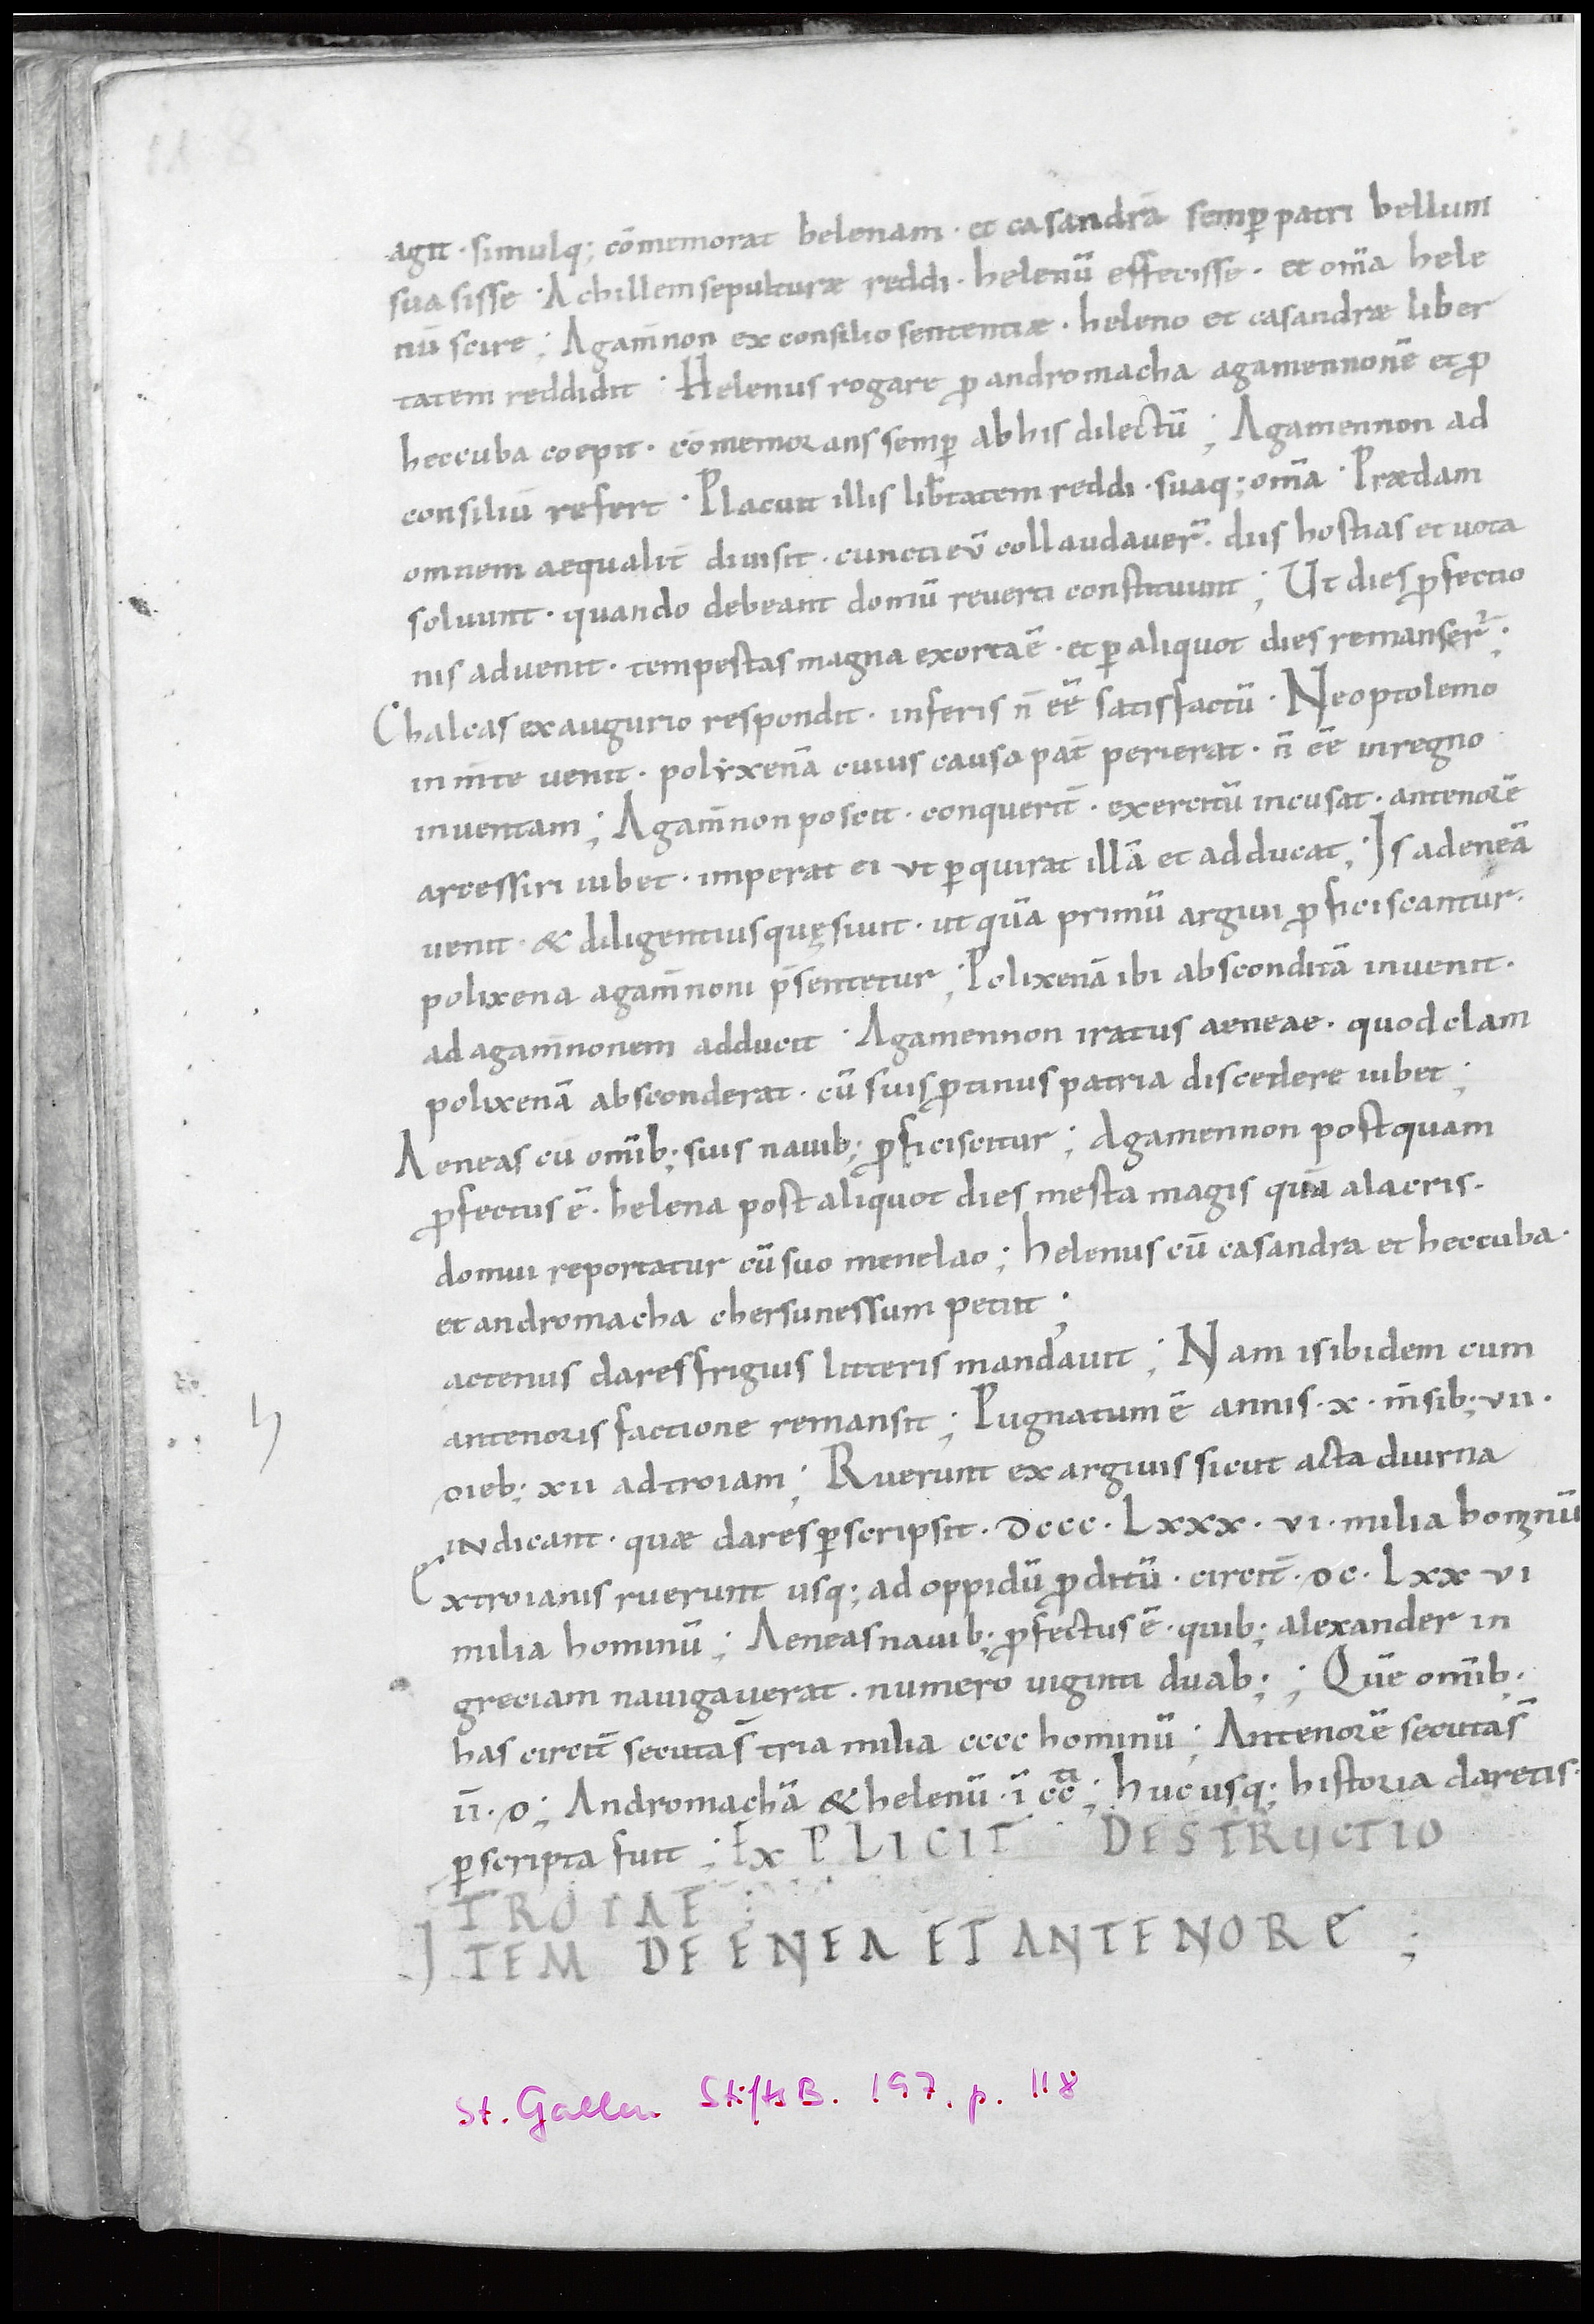 118
agit · simulq; cōmemorat helenam · et casandrā semp̄ patri bellum
suasisse · Achillem sepulturæ reddi · helenū effecisse · et om̄a hele
nū scire ; Agam̄non ex consilio sententiæ · heleno et casandræ liber
tatem reddidit · Helenus rogare ꝓ andromacha agamennonē et ꝓ
heccuba coepit · cōmemorans semp̄ ab his dilectū ; Agamennon ad
consiliū refert · Placuit illis lib̄tatem reddi · suaq; om̄a · Prædam
omnem aequalit̄ diuisit · cuncti eū collaudauer̄ · diis hostias et uota
soluunt · quando debeant domū reuerti constituunt ; Ut dies ꝓfectio
nis aduenit · tempestas magna exorta ē · et ꝑ aliquot dies remanser̄ ;
Chalcas ex augurio respondit · inferis n̄ ēē satisfactū · Neoptolemo
in m̄te uenit · polẏxenā cuius causa pat̄ perierat · n̄ ēē in regno
inuentam ; Agam̄non poscit · conquerit̄ · exercitū incusat · antenorē
arcessiri iubet · imperat ei ut ꝑquirat illā et adducat ; Is ad eneā
uenit · & diligentius quęsiuit · ut quā primū argiui ꝓficiscantur ·
polixena agam̄noni p̄sentetur ; Polixenā ibi absconditā inuenit ·
ad agam̄nonem adducit · Agamennon iratus aeneae · quod clam
polixenā absconderat · cū suis ꝓtinus patria discedere iubet ;
Aeneas cū om̄ib; suis nauib; ꝓficiscitur ; Agamennon postquam
ꝓfectus ē · helena post aliquot dies mesta magis quā alacris ·
domui reportatur cū suo menelao ; helenus cū casandra et heccuba ·
et andromacha chersunessum petiit ;
actenus dares frigius litteris mandauit ; Nam is ibidem cum
antenoris factione remansit ; Pugnatum ē annis · x · m̄sib; vii ·
dieb; xii ad troiam ; Ruerunt ex argiuis sicut acta diurna
indicant · quæ dares ꝑscripsit · dccc · Lxxx · vi · milia hominū
Ex troianis ruerunt usq; ad oppidū ꝓditū · circit̄ · dc · Lxx vi
milia hominū ; Aeneas nauib; ꝓfectus ē · quib; alexander in
greciam nauigauerat · numero uiginti duab; ; Quē om̄ib ·
has circit̄ secutas̄ tria milia cccc hominū ; Antenorē secutas̄
īī · d ; Andromachā & helenū · ī cc̄ti ; huc usq; historia daretis ·
ꝑscripta fuit ; EXPLICIT DESTRUCTIO
TROIAE ;
ITEM DE ENEA ET ANTENORE ;
St. Gallen StiftsB. 197, p. 118